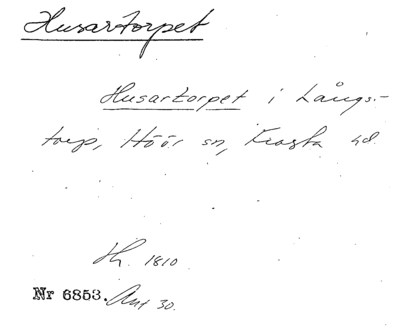 Husartorpet
Husartorpet i Långs-
torp, Höör sn, Frosta hd.
Hfl. 1810
Nr 6853. Ant 30.